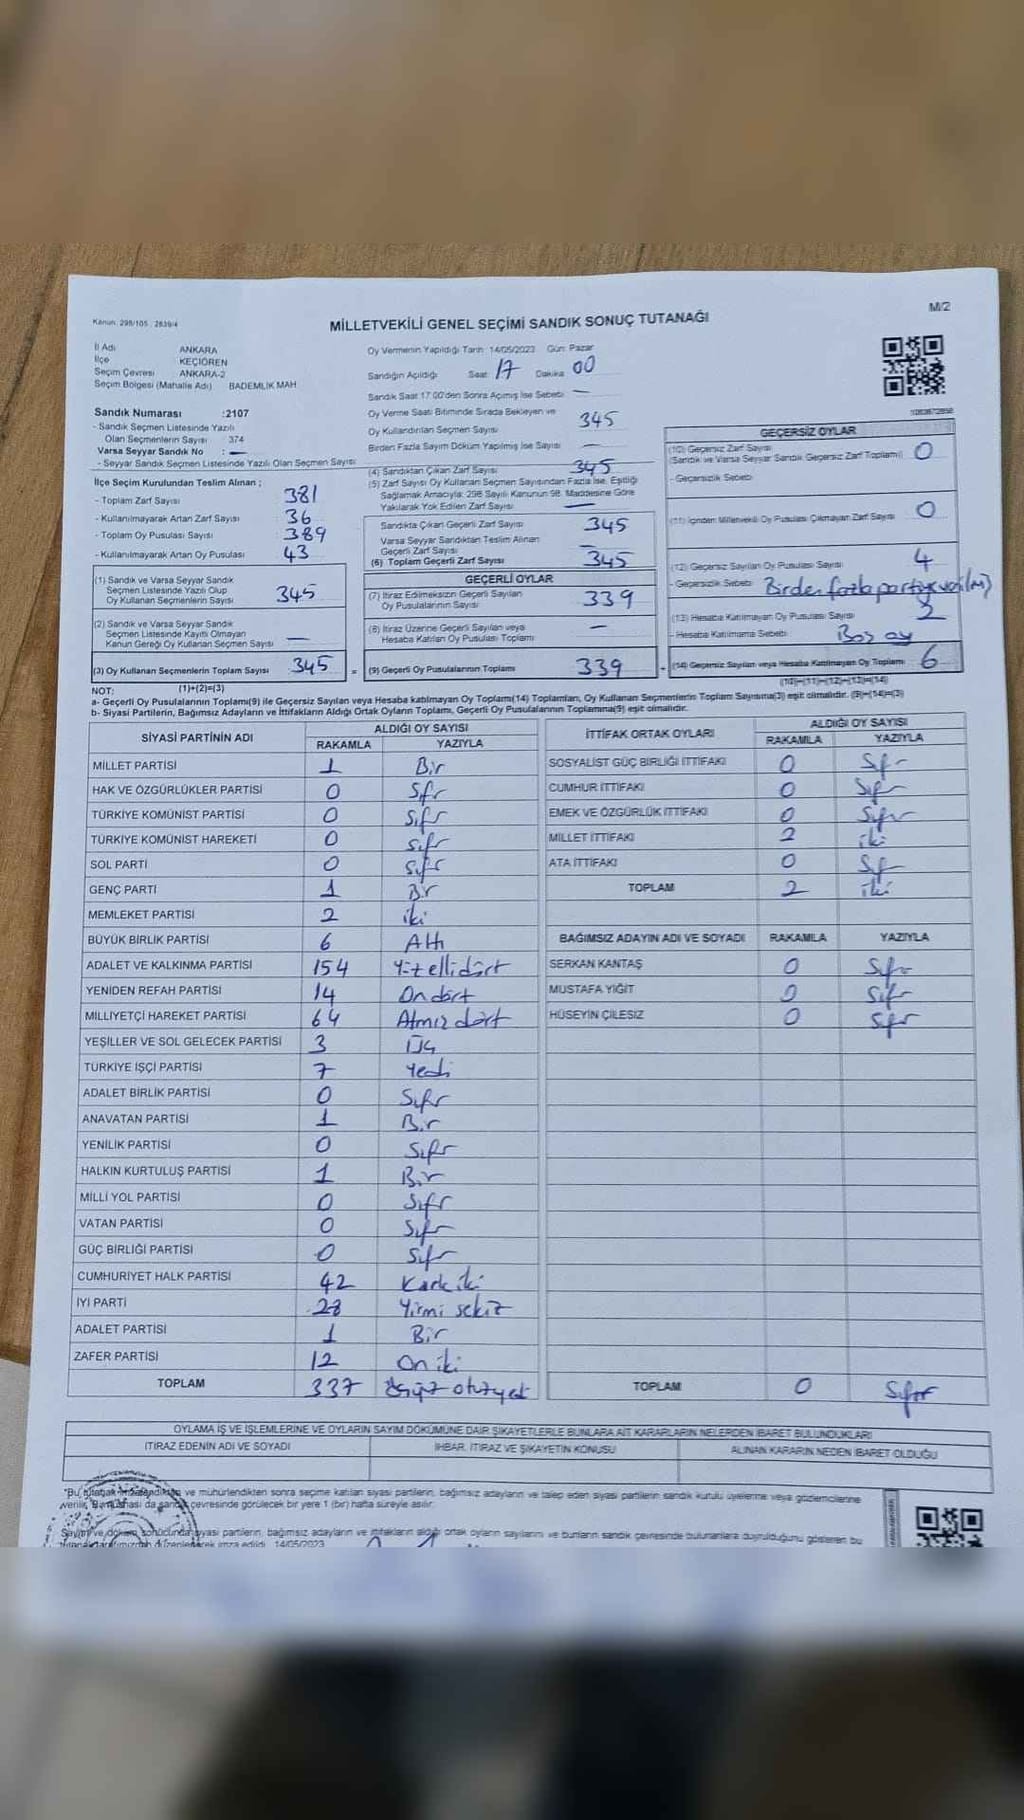 Kanun: 298/105 , 2839/4
MİLLETVEKİLİ GENEL SEÇİMİ SANDIK SONUÇ TUTANAĞI
M/2
İl Adı ANKARA
İlçe KEÇİÖREN
Seçim Çevresi ANKARA-2
Seçim Bölgesi (Mahalle Adı) BADEMLİK MAH
Sandık Numarası :2107
- Sandık Seçmen Listesinde Yazılı
Olan Seçmenlerin Sayısı : 374
Varsa Seyyar Sandık No : —
- Seyyar Sandık Seçmen Listesinde Yazılı Olan Seçmen Sayısı
İlçe Seçim Kurulundan Teslim Alınan ;
- Toplam Zarf Sayısı 381
- Kullanılmayarak Artan Zarf Sayısı 36
- Toplam Oy Pusulası Sayısı 389
- Kullanılmayarak Artan Oy Pusulası 43
(1) Sandık ve Varsa Seyyar Sandık
Seçmen Listesinde Yazılı Olup
Oy Kullanan Seçmenlerin Sayısı 345
(2) Sandık ve Varsa Seyyar Sandık
Seçmen Listesinde Kayıtlı Olmayan
Kanun Gereği Oy Kullanan Seçmen Sayısı —
(3) Oy Kullanan Seçmenlerin Toplam Sayısı 345 =
(1)+(2)=(3)
Oy Vermenin Yapıldığı Tarih: 14/05/2023 Gün: Pazar
Sandığın Açıldığı Saat 17 Dakika 00
Sandık Saat 17.00'den Sonra Açılmış İse Sebebi —
Oy Verme Saati Bitiminde Sırada Bekleyen ve
Oy Kullandırılan Seçmen Sayısı 345
Birden Fazla Sayım Döküm Yapılmış İse Sayısı —
(4) Sandıktan Çıkan Zarf Sayısı 345
(5) Zarf Sayısı Oy Kullanan Seçmen Sayısından Fazla İse, Eşitliği
Sağlamak Amacıyla; 298 Sayılı Kanunun 98. Maddesine Göre
Yakılarak Yok Edilen Zarf Sayısı —
Sandıkta Çıkan Geçerli Zarf Sayısı 345
Varsa Seyyar Sandıktan Teslim Alınan
Geçerli Zarf Sayısı —
(6) Toplam Geçerli Zarf Sayısı 345
GEÇERLİ OYLAR
(7) İtiraz Edilmeksizin Geçerli Sayılan
Oy Pusulalarının Sayısı 339
(8) İtiraz Üzerine Geçerli Sayılan veya
Hesaba Katılan Oy Pusulası Toplamı —
(9) Geçerli Oy Pusulalarının Toplamı 339 +
GEÇERSİZ OYLAR
(10) Geçersiz Zarf Sayısı
(Sandık ve Varsa Seyyar Sandık Geçersiz Zarf Toplamı) 0
- Geçersizlik Sebebi
(11) İçinden Milletvekili Oy Pusulası Çıkmayan Zarf Sayısı 0
(12) Geçersiz Sayılan Oy Pusulası Sayısı 4
- Geçersizlik Sebebi Birden fazla partiye
(13) Hesaba Katılmayan Oy Pusulası Sayısı 2
- Hesaba Katılmama Sebebi Boş oy
(14) Geçersiz Sayılan veya Hesaba Katılmayan Oy Toplamı 6
(10)+(11)+(12)+(13)=(14)
NOT:
a- Geçerli Oy Pusulalarının Toplamı(9) ile Geçersiz Sayılan veya Hesaba katılmayan Oy Toplamı(14) Toplamları, Oy Kullanan Seçmenlerin Toplam Sayısına(3) eşit olmalıdır. (9)+(14)=(3)
b- Siyasi Partilerin, Bağımsız Adayların ve İttifakların Aldığı Ortak Oyların Toplamı, Geçerli Oy Pusulalarının Toplamına(9) eşit olmalıdır.
SİYASİ PARTİNİN ADI ALDIĞI OY SAYISI
RAKAMLA YAZIYLA
MİLLET PARTİSİ 1 Bir
HAK VE ÖZGÜRLÜKLER PARTİSİ 0 Sıfır
TÜRKİYE KOMÜNİST PARTİSİ 0 Sıfır
TÜRKİYE KOMÜNİST HAREKETİ 0 Sıfır
SOL PARTİ 0 Sıfır
GENÇ PARTİ 1 Bir
MEMLEKET PARTİSİ 2 iki
BÜYÜK BİRLİK PARTİSİ 6 Altı
ADALET VE KALKINMA PARTİSİ 154 Yüzellidört
YENİDEN REFAH PARTİSİ 14 Ondört
MİLLİYETÇİ HAREKET PARTİSİ 64 Atmış dört
YEŞİLLER VE SOL GELECEK PARTİSİ 3 Üç
TÜRKİYE İŞÇİ PARTİSİ 7 Yedi
ADALET BİRLİK PARTİSİ 0 Sıfır
ANAVATAN PARTİSİ 1 Bir
YENİLİK PARTİSİ 0 Sıfır
HALKIN KURTULUŞ PARTİSİ 1 Bir
MİLLİ YOL PARTİSİ 0 Sıfır
VATAN PARTİSİ 0 Sıfır
GÜÇ BİRLİĞİ PARTİSİ 0 Sıfır
CUMHURİYET HALK PARTİSİ 42 Kırkiki
İYİ PARTİ 28 Yirmi sekiz
ADALET PARTİSİ 1 Bir
ZAFER PARTİSİ 12 On iki
TOPLAM 337 Üçyüz otuzyedi
İTTİFAK ORTAK OYLARI ALDIĞI OY SAYISI
RAKAMLA YAZIYLA
SOSYALİST GÜÇ BİRLİĞİ İTTİFAKI 0 Sıfır
CUMHUR İTTİFAKI 0 Sıfır
EMEK VE ÖZGÜRLÜK İTTİFAKI 0 Sıfır
MİLLET İTTİFAKI 2 iki
ATA İTTİFAKI 0 Sıfır
TOPLAM 2 iki
BAĞIMSIZ ADAYIN ADI VE SOYADI RAKAMLA YAZIYLA
SERKAN KANTAŞ 0 Sıfır
MUSTAFA YİĞİT 0 Sıfır
HÜSEYİN ÇİLESİZ 0 Sıfır
TOPLAM 0 Sıfır
OYLAMA İŞ VE İŞLEMLERİNE VE OYLARIN SAYIM DÖKÜMÜNE DAİR ŞİKAYETLERLE BUNLARA AİT KARARLARIN NELERDEN İBARET BULUNDUKLARI
İTİRAZ EDENİN ADI VE SOYADI İHBAR, İTİRAZ VE ŞİKAYETİN KONUSU ALINAN KARARIN NEDEN İBARET OLDUĞU
"Bu tutanak imzalandıktan ve mühürlendikten sonra seçime katılan siyasi partilerin, bağımsız adayların ve talep eden siyasi partilerin sandık kurulu üyelerine veya gözlemcilerine
verilir. Bir nüshası da sandık çevresinde görülecek bir yere 1 (bir) hafta süreyle asılır.
Sayım ve döküm sonucunda siyasi partilerin, bağımsız adayların ve ittifakların aldığı ortak oyların sayılarını ve bunların sandık çevresinde bulunanlara duyrulduğunu gösteren bu
tutanak tarafımızdan düzenlenerek imza edildi. 14/05/2023